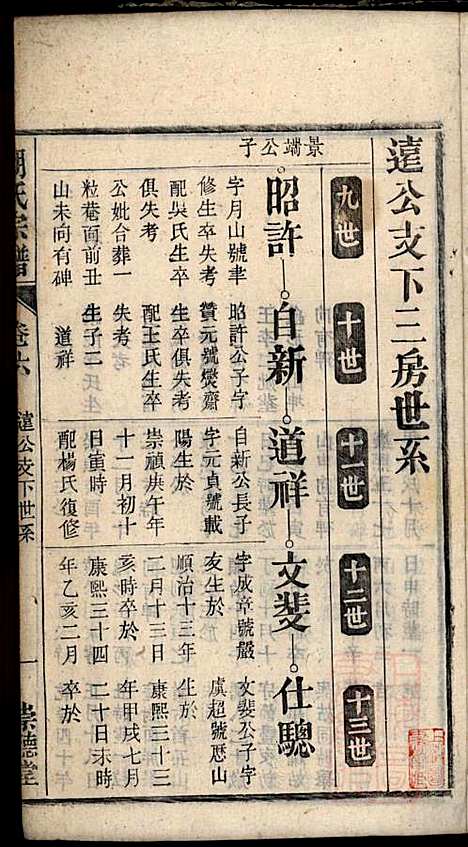 遠公支下三房世系
九世
十世
十一世
十二世
十三世
景端公子
昭許
自新
道祥
文斐
仕驄
字月山號聿
修生卒失考
配吳氏生卒
俱失考
公妣合葬一
粒菴面前丑
山未向有碑
昭許公子字
贊元號爕齋
生卒俱失考
配王氏生卒
失考
生子二
道祥
自新公長子
字元貞號載
陽生於
崇禎庚午年
十一月初十
日寅時
配楊氏復修
字成章號嚴
友生於
順治十三年
二月十三日
亥時卒於
康熙三十四
年乙亥二月
文斐公子字
虞超號歷山
生於
康熙三十三
年甲戌七月
二十日未時
卒於
胡氏宗譜
卷六
遠公支下世系
一
崇德堂